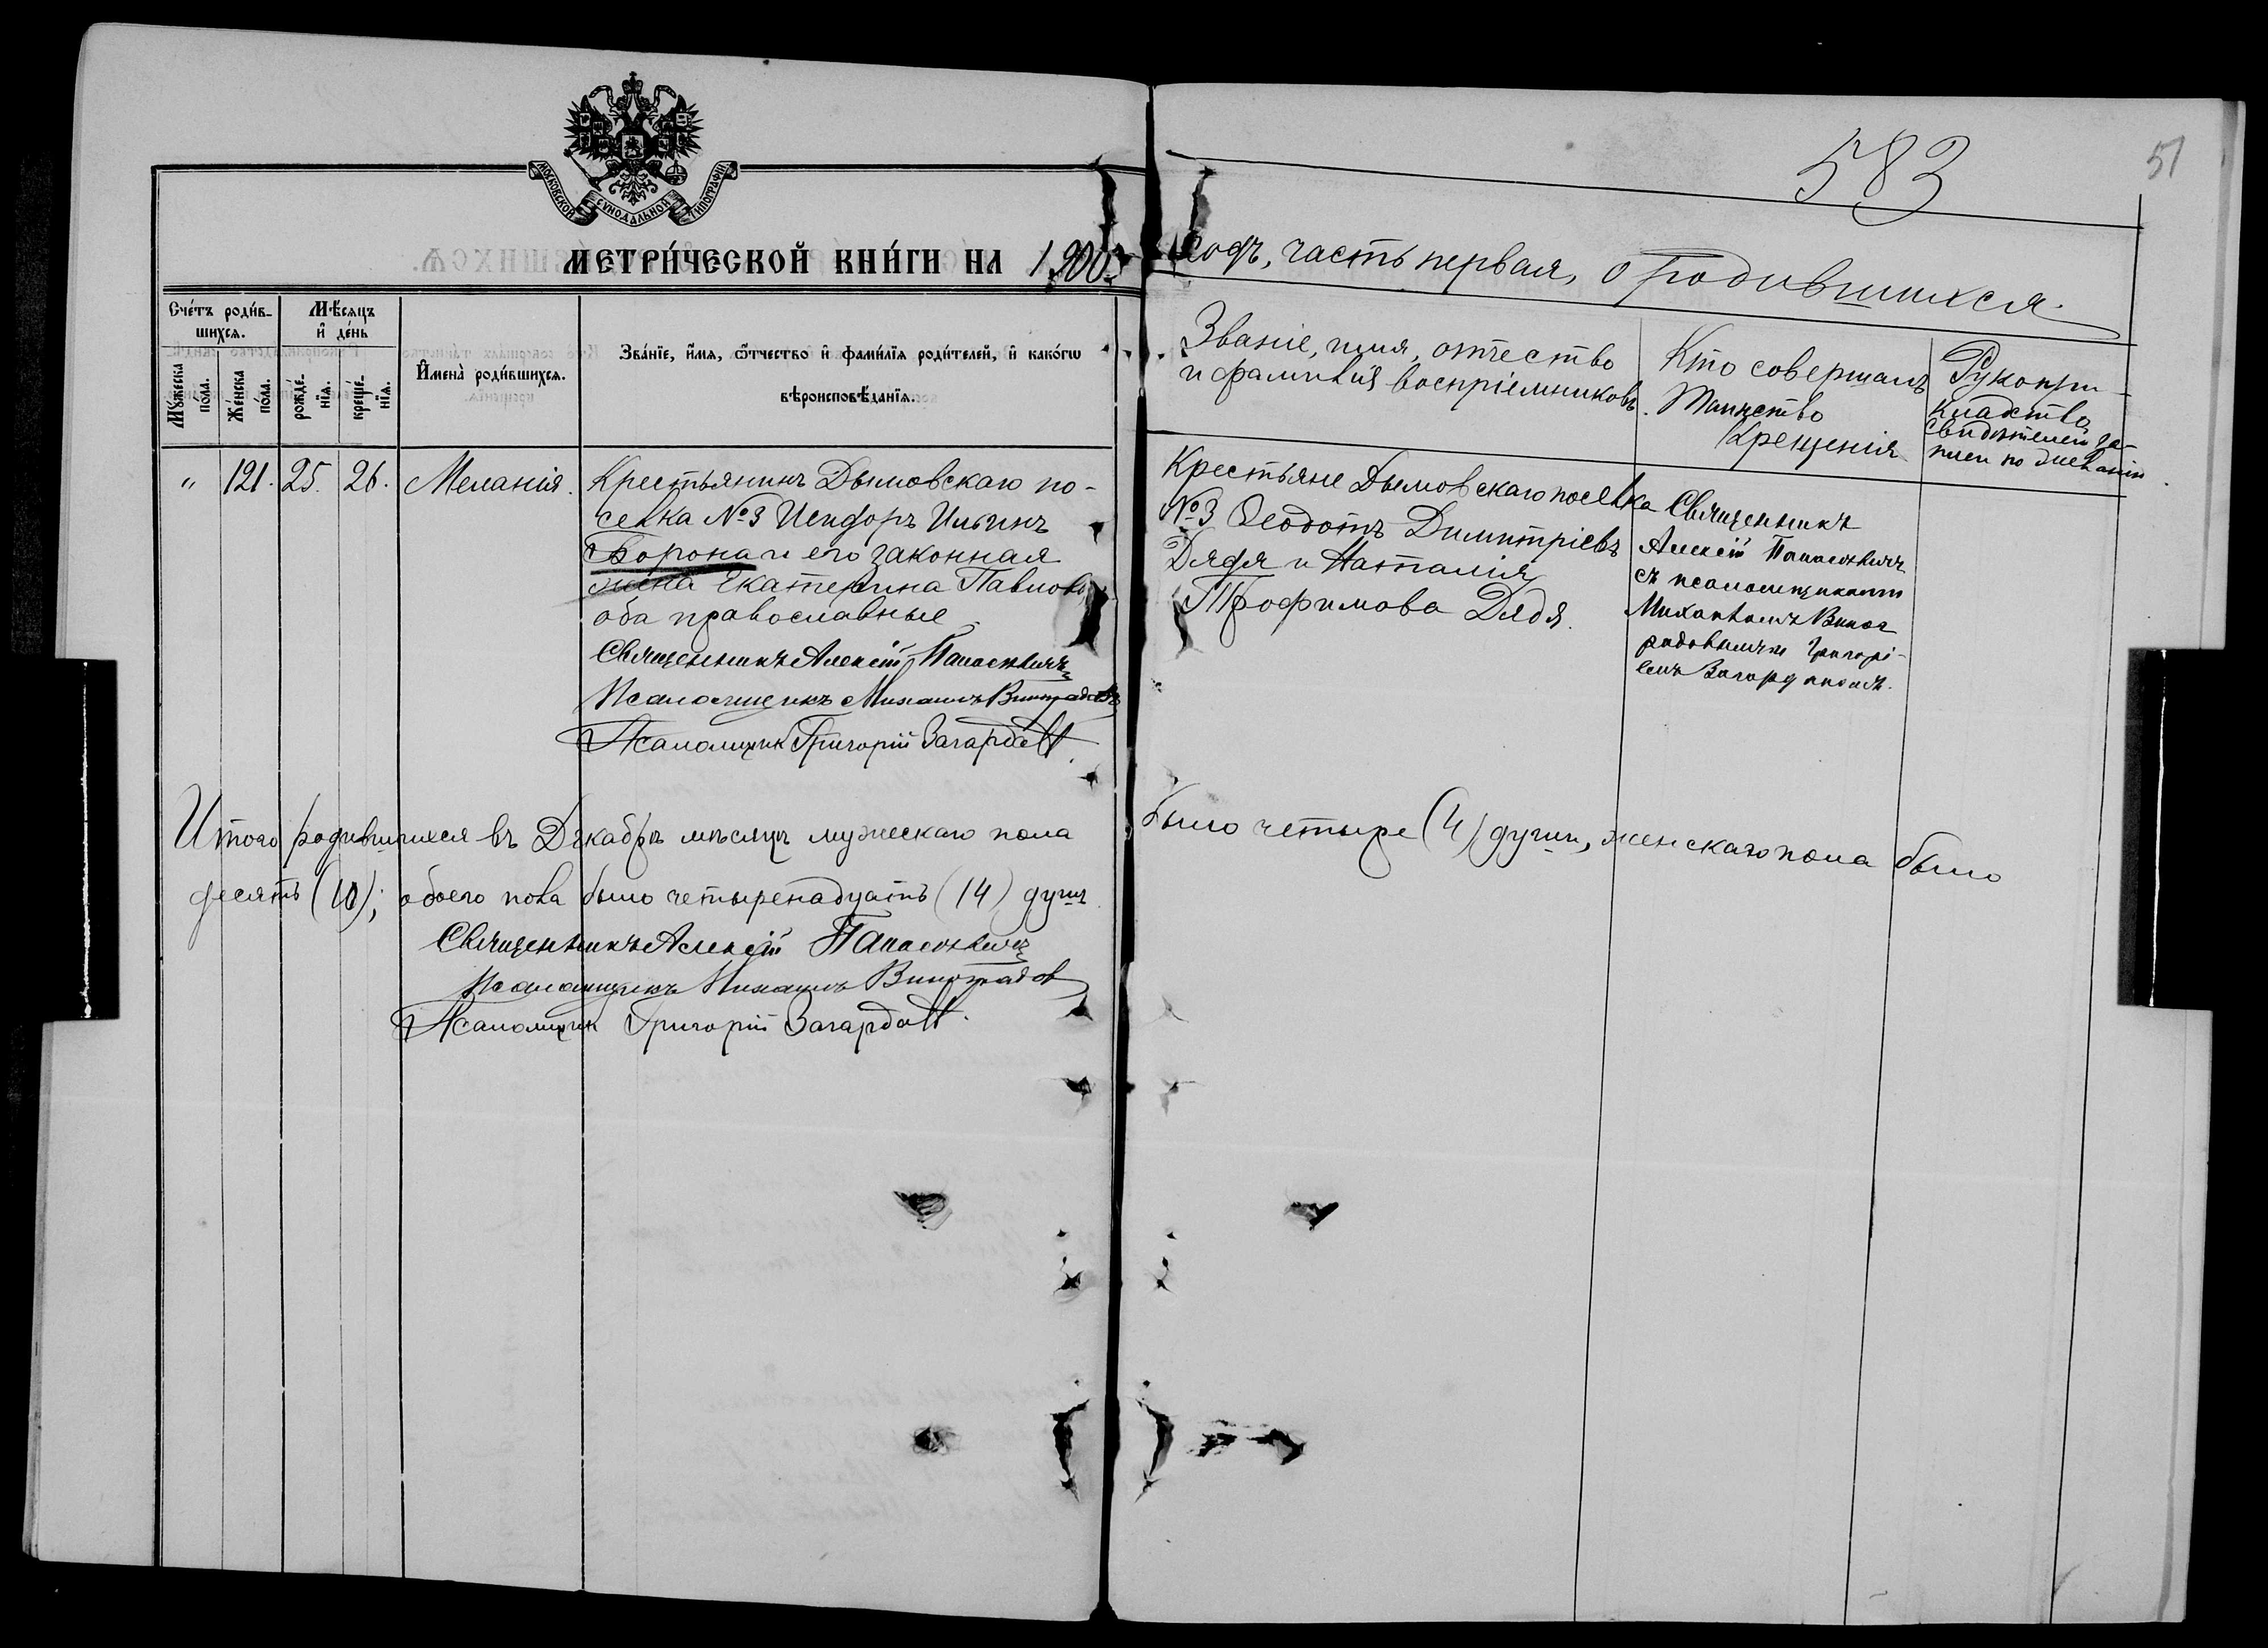 583
51
МОСКОВСКОЙ СУНОДАЛЬНОЙ ТИПОГРАФІИ
МЕТРИ́ЧЕСКОЙ КНИ́ГИ НА 1900
годъ, часть первая, о родившихся.
Сче́тъ роди́в-
шихся.
Му́жеска
пола.
Же́нска
по́ла.
Мѣ́сяцъ
и҆ де́нь
рожде́-
нїѧ.
креще́-
нїѧ.
И҆мена̀ роди́вшихсѧ.
Зва́нїе, и҆́мѧ, ѻ҆́тчество и҆ фами́лїѧ роди́телей, и҆ како́гѡ
вѣроисповѣ́данїѧ.
Званіе, имя, отчество
и фамилія воспріемниковъ.
Кто совершалъ
таинство
крещенія
Рукопри-
кладство
свидѣтелей за-
писи по желанію
" 121. 25. 26. Меланія.
Крестьянинъ Дымовскаго по-
селка №3 Исидоръ Ильинъ
Ворона и его законная
жена Екатерина Павлова
оба православные
Священникъ Алексій
Псаломщикъ Михаилъ Виноградовъ
Псаломщик Григорій
Крестьяне Дымовскаго поселка
№3 Ѳеодотъ Димитріевъ
Дядя и Наталія
Трофимова Дядя.
Священникъ
Алексій
съ псаломщиками
Михаиломъ Виног
радовымъ и Григорі-
емъ
Итого родившихся въ Декабрѣ мѣсяцѣ мужескаго пола было четыре (4) души, женскаго пола было
десять (10); обоего пола было четыренадцать (14) душъ
Священникъ Алексій
Псаломщикъ Михаилъ Виноградов
Псаломщик Григорій